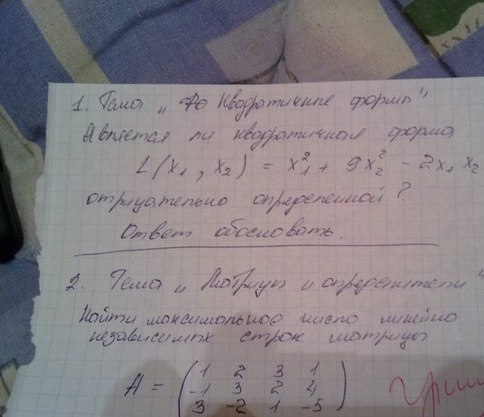 1. Тема „ Квадратичные формы"
Является ли квадратичная форма
L(x₁, x₂) = x₁² + 9x₂² - 2x₁x₂
отрицательно определенной?
Ответ обосновать.
2. Тема „ Матрицы и определители"
Найти максимальное число линейно
независимых строк матрицы
A = ( 1 2 3 1
-1 3 2 4
3 -2 1 -5 )